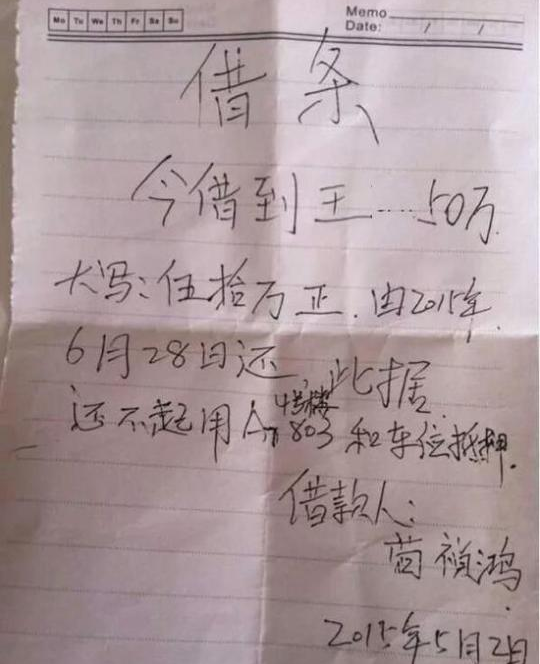 Mo Tu We Th Fr Sa Su
Memo
Date: / /
借条
今借到王....50万
大写:伍拾万正.由2015年
6月28日还,此据
4号楼
还不起用 803 和车位抵押.
借款人:
祯鸿
2015年5月2日